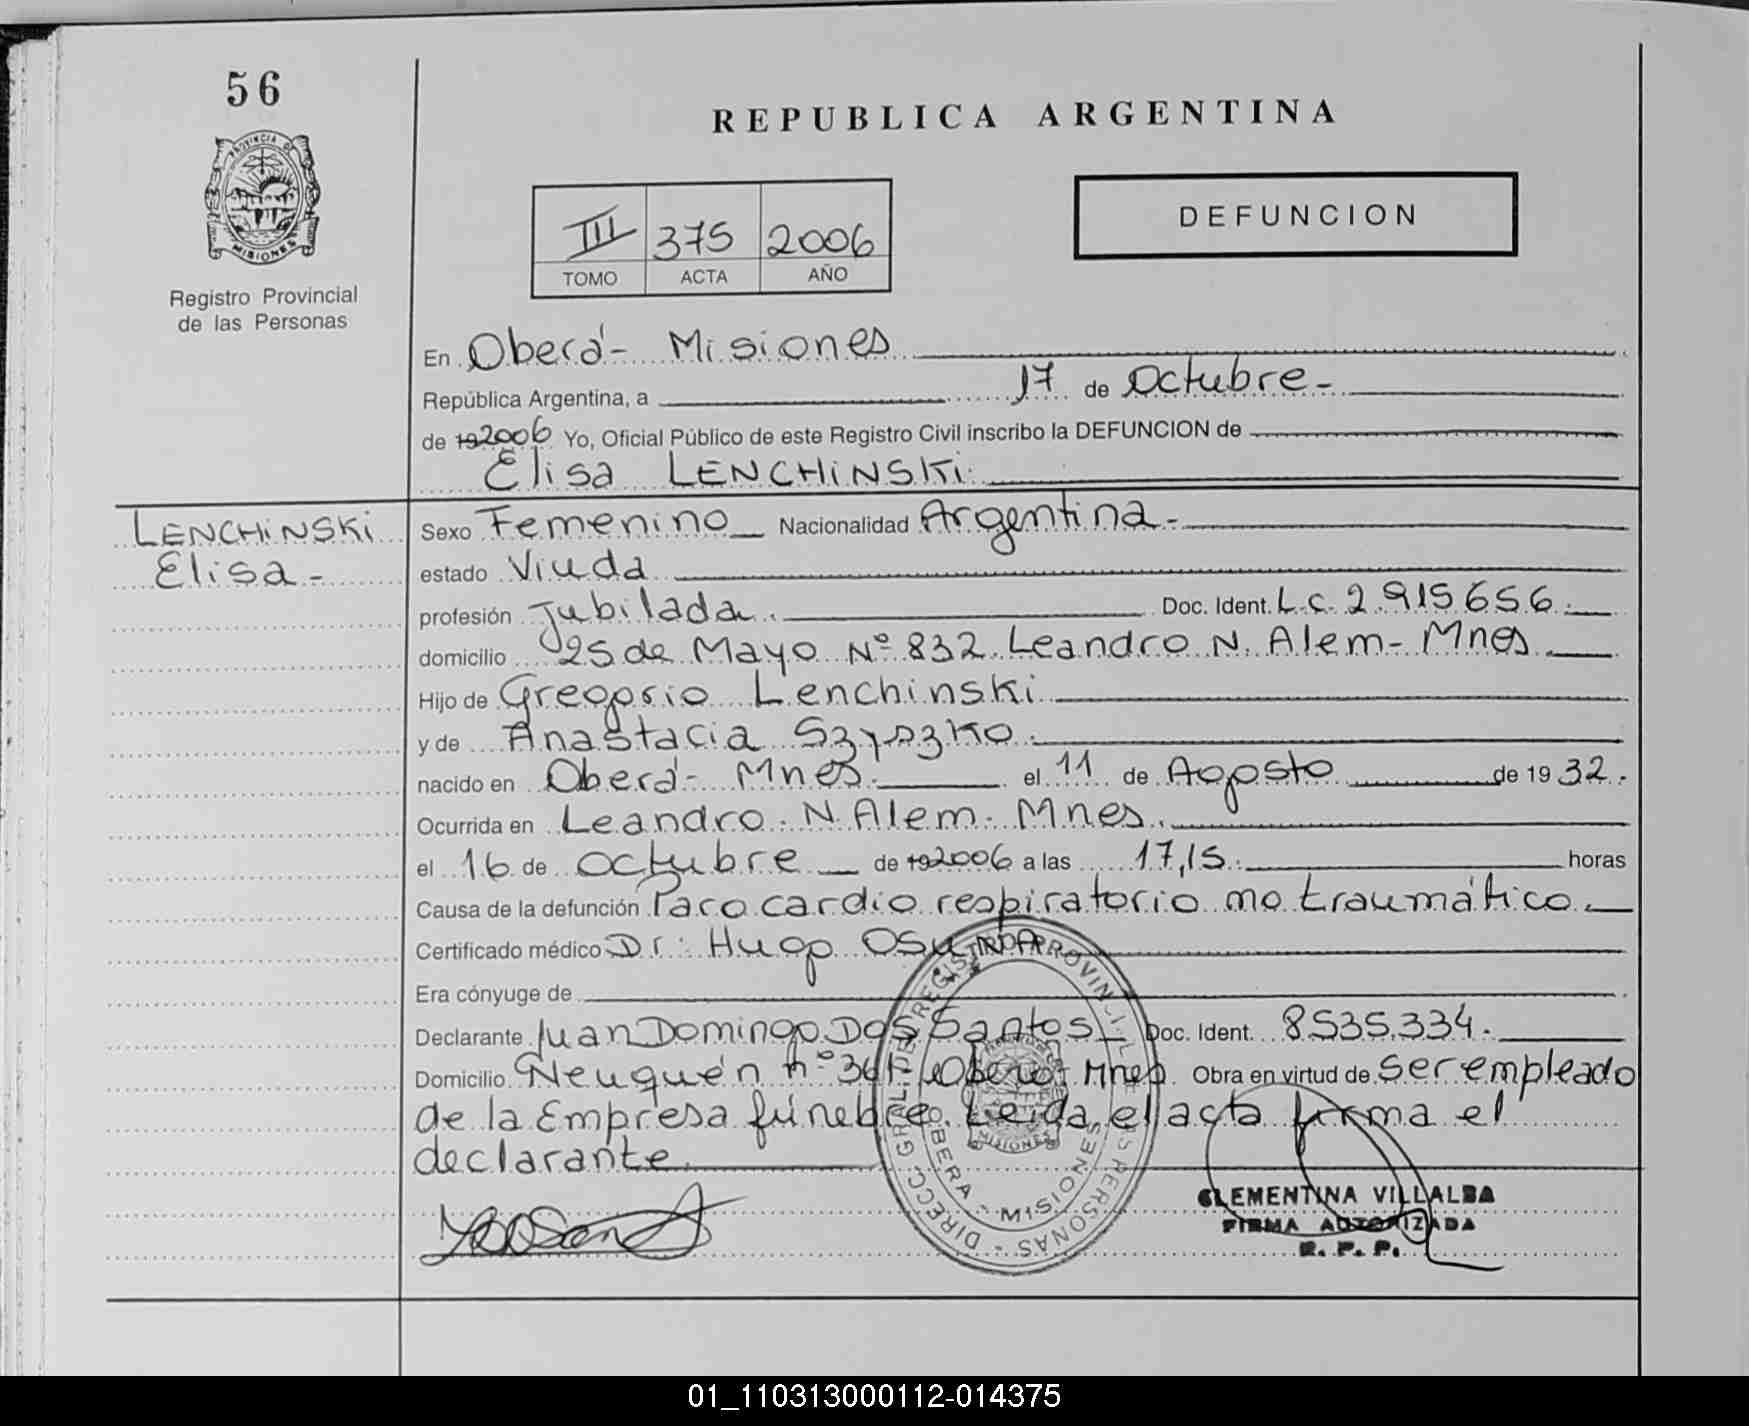 56
PROVINCIA DE
MISIONES
Registro Provincial
de las Personas
REPUBLICA ARGENTINA
III 375 2006
TOMO ACTA AÑO
DEFUNCION
En Oberá- Misiones
República Argentina, a 17 de Octubre-
de 192006 Yo, Oficial Público de este Registro Civil inscribo la DEFUNCION de
Elisa LENCHiNSKi.
LENCHiNSKi
Elisa-
Sexo Femenino Nacionalidad Argentina-
estado Viuda
profesión Jubilada. Doc. Ident. L.C. 2.915.656.
domicilio 25 de Mayo Nº 832. Leandro N. Alem- Mnes
Hijo de Gregorio Lenchinski
y de Anastacia Szyszko.
nacido en Oberá- Mnes. el 11 de Agosto de 1932.
Ocurrida en Leandro. N. Alem. Mnes.
el 16 de Octubre de 192006 a las 17,15. horas
Causa de la defunción Paro cardio respiratorio no traumático.
Certificado médico Dr: Hugo OSUNA
Era cónyuge de
Declarante Juan Domingo Dos Santos Doc. Ident. 8535.334.
Domicilio Neuquén nº 361- Oberá Mnes. Obra en virtud de ser empleado
de la Empresa fúnebre. Leída el acta firma el
declarante.
DIRECC. GRAL. DE REGISTRO PROVINCIAL DE LAS PERSONAS
OBERA - MISIONES
CLEMENTINA VILLALBA
FIRMA AUTORIZADA
R. P. P.
01_110313000112-014375